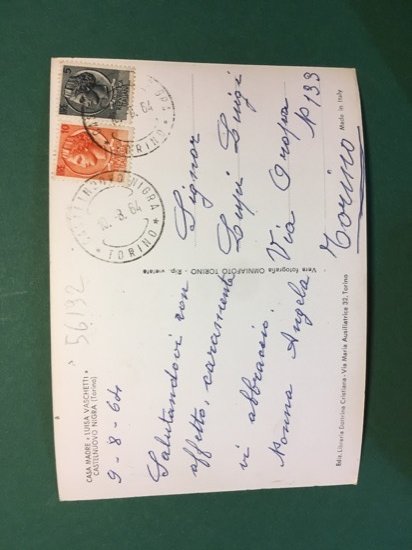 CASA MADRE « LUISA VASCHETTI »
CASTELNUOVO NIGRA (Torino)
9-8-64
Salutandovi con
affetto, caramente
vi abbraccio
Nonna Angela
56192
Vera fotografia OMNIAFOTO TORINO - Rip. vietata
Ediz. Libreria Dottrina Cristiana - Via Maria Ausiliatrice 32, Torino
5
10
CASTELNUOVO NIGRA
10.8.64
* TORINO *
Signor
Lupi Luigi
Via Oropa
N 133
Torino
Made in Italy